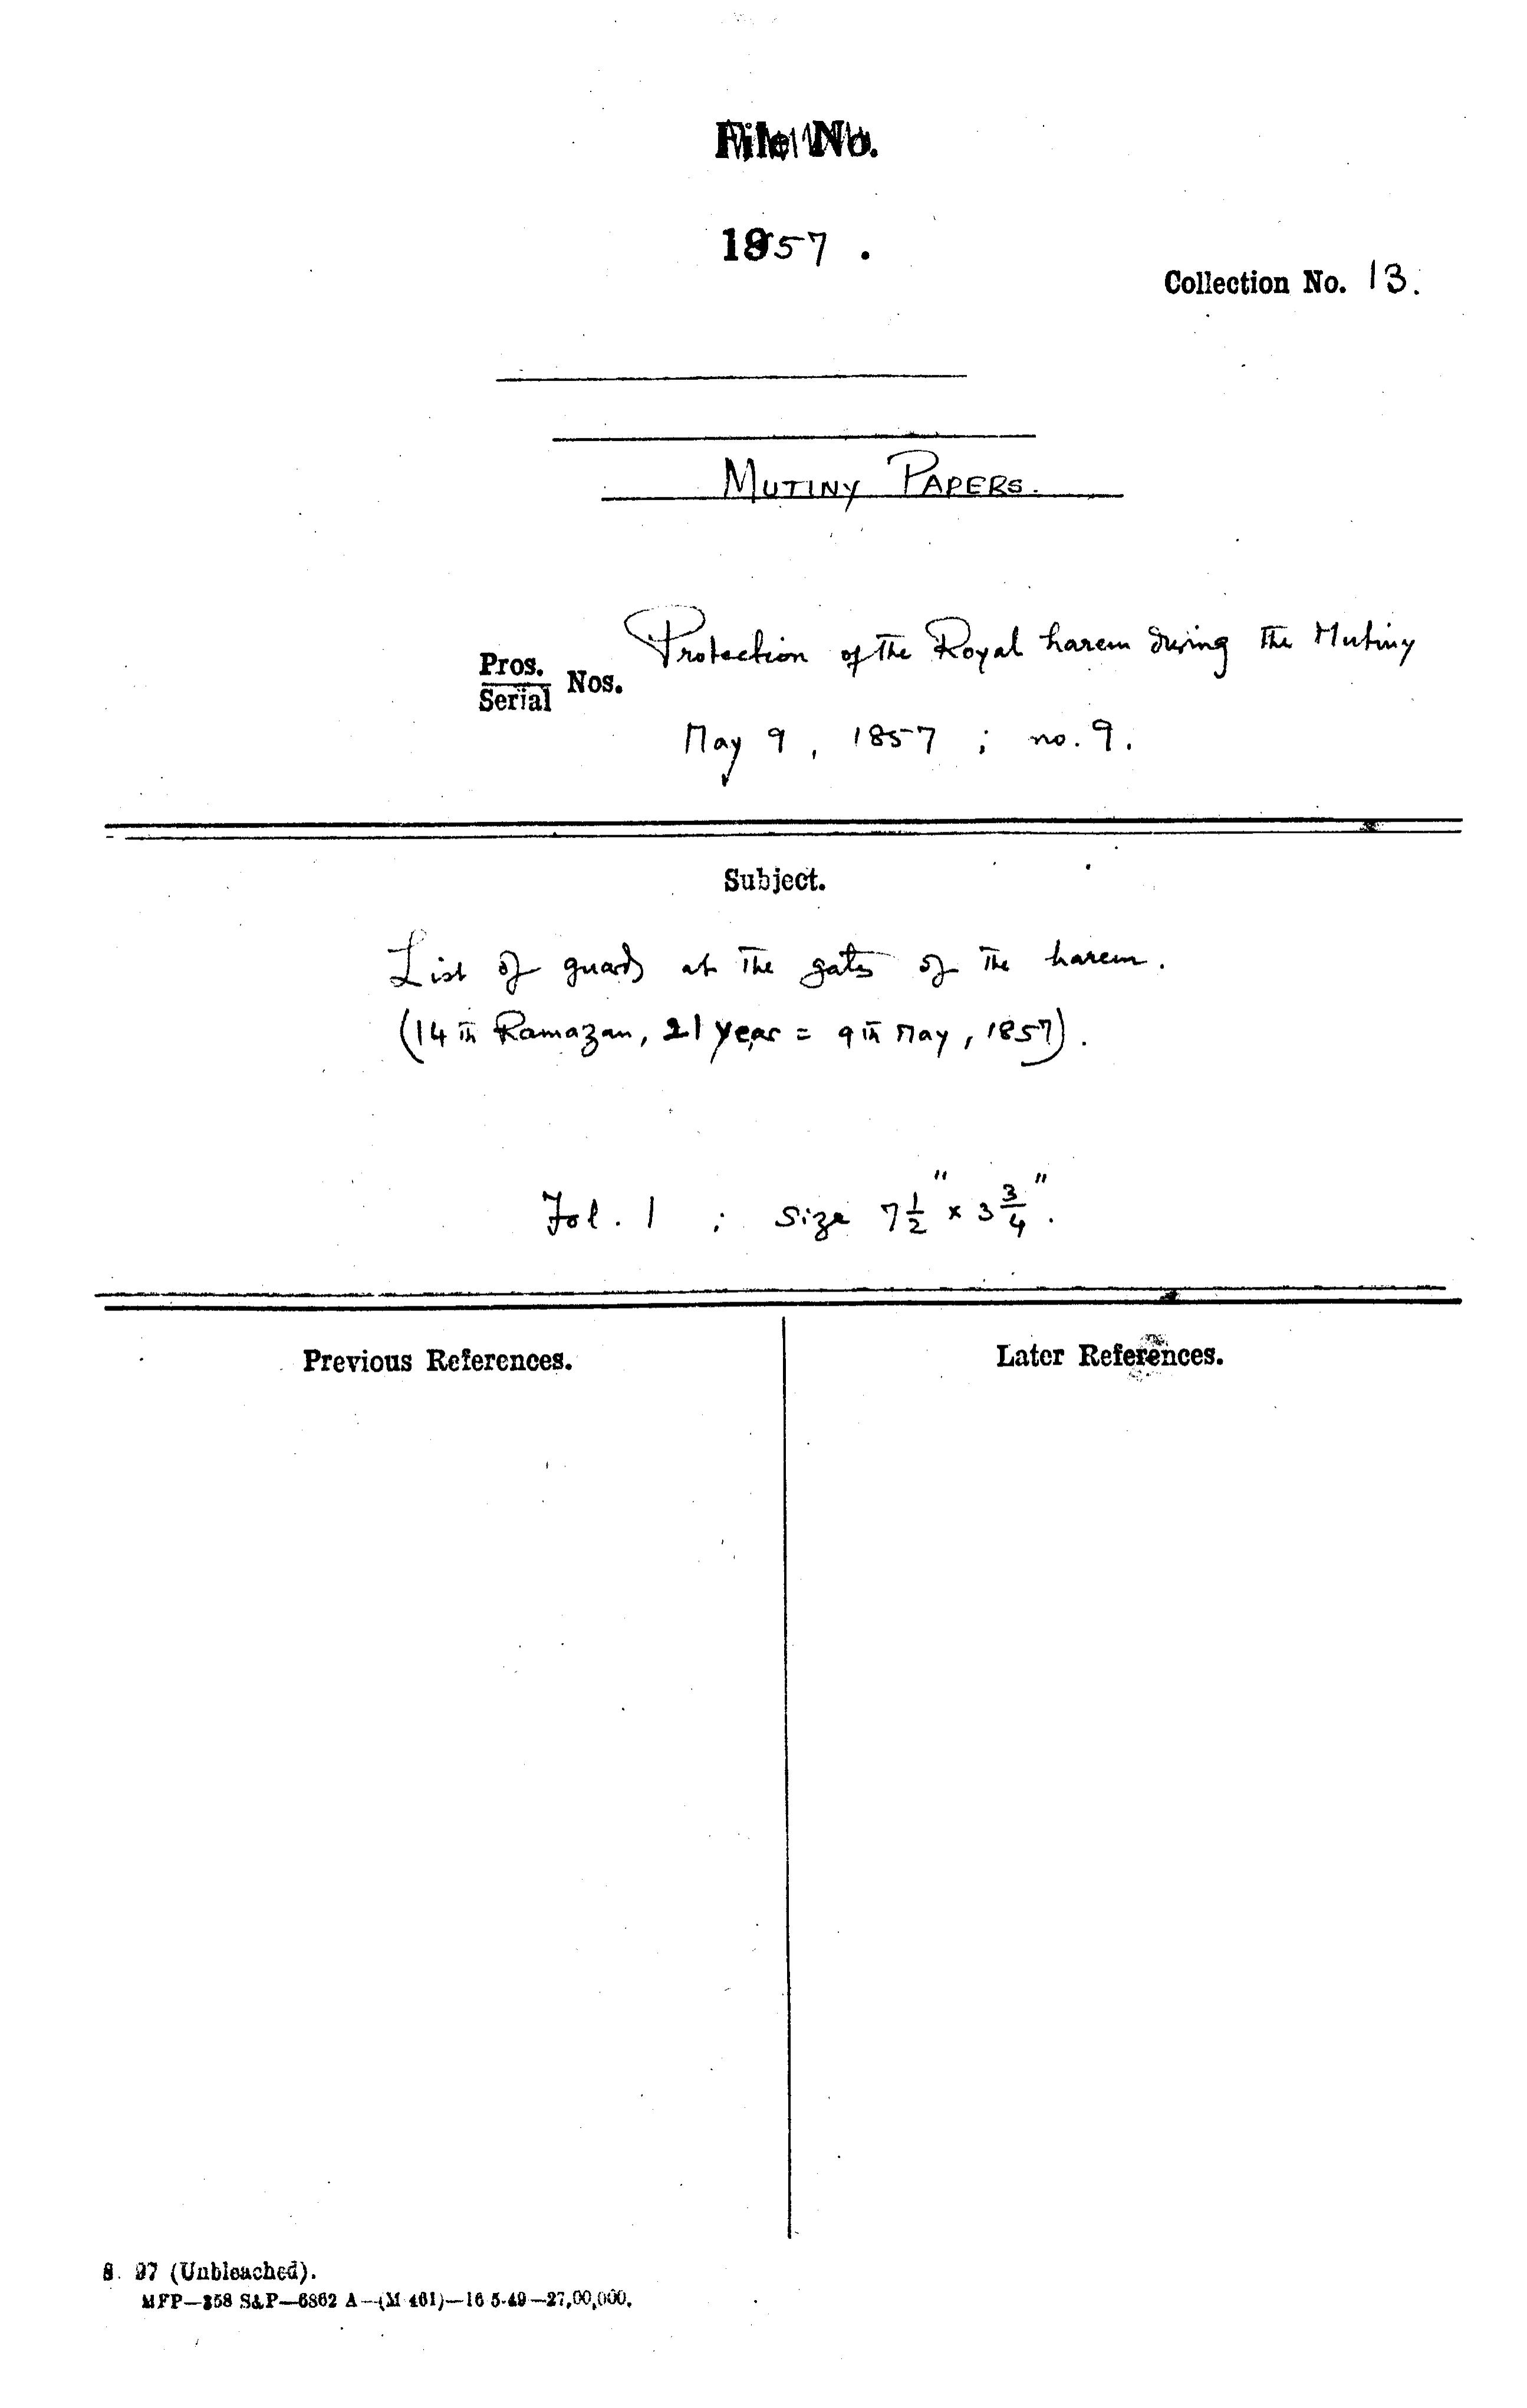 File No.
1857 .
Collection No. 13.
MUTINY PAPERS.
Pros.
Serial Nos.
Protection of the Royal harem during the Mutiny
May 9, 1857 ; no. 9.
Subject.
List of guards at the gates of the harem.
(14th Ramazan, 21 year = 9th May, 1857).
Fol. 1 ; Size 7 1/2" x 3 3/4".
Previous References.
Later References.
S. 97 (Unbleached).
MFP—358 S&P—6862 A—(M 461)—16-5-49—27,00,000.